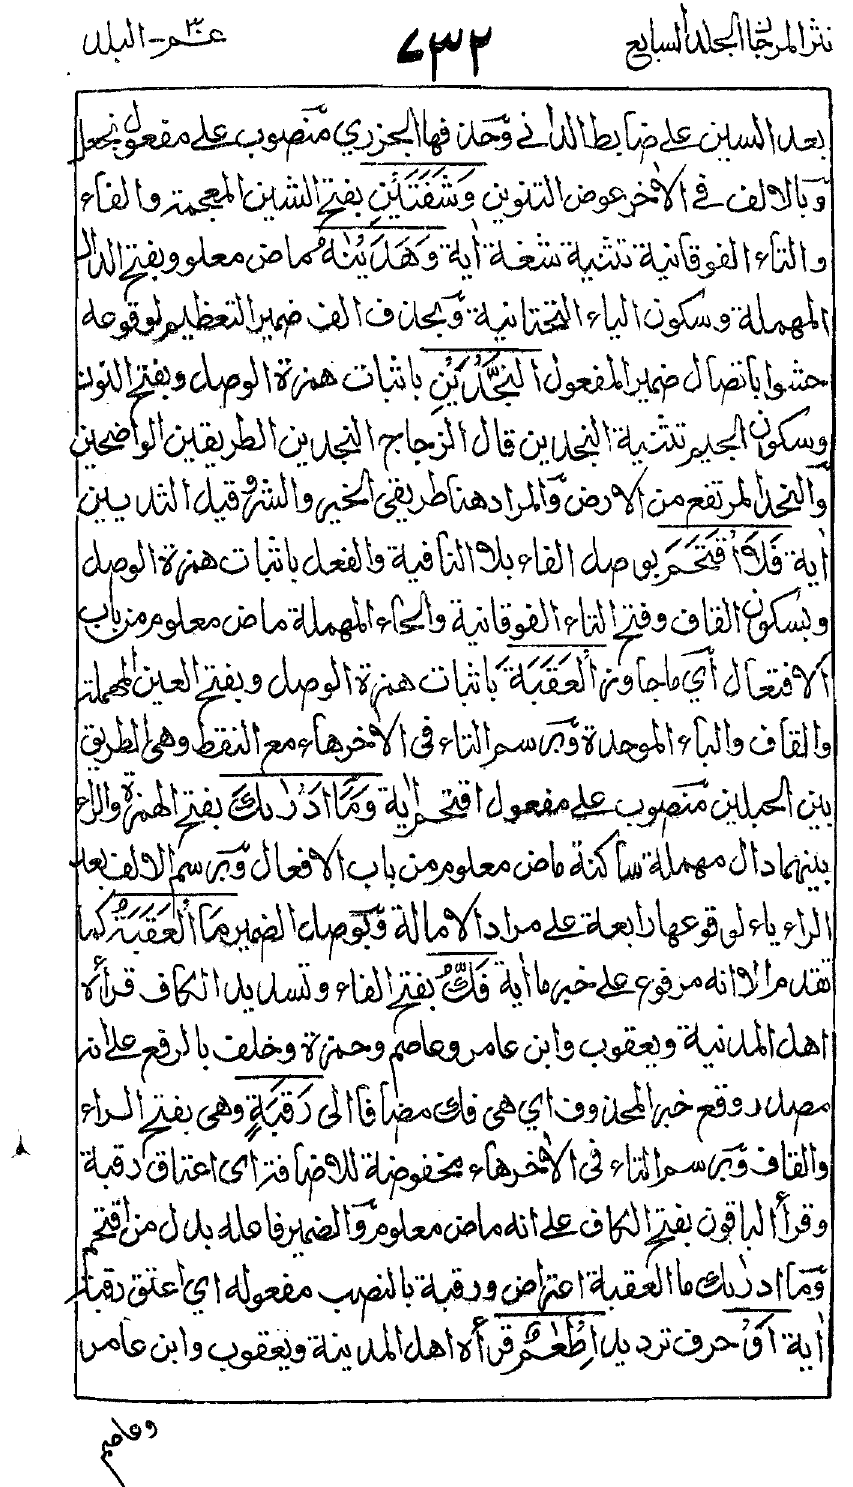 نثر المرجان المجلد السابع
٧٣٢
عم - البلد
بعد السين على ضابط الداني وحذفها الجزري منصوب على مفعول نجعل
وبالالف في الاٰخر عوض التنوين وَشَفَتَيْنِ بفتح الشين المعجمة والفاء
والتاء الفوقانية تثنية شفة اٰية وَهَدَيْنٰهُ ماض معلوم وبفتح الدال
المهملة وسكون الياء التحتانية وبحذف الف ضمير التعظيم لوقوعه
حشوا باتصال ضمير المفعول النَّجْدَيْنِ باثبات همزة الوصل وبفتح النون
وسكون الجيم تثنية النجدين قال الزجاج النجدين الطريقين الواضحين
والنجد المرتفع من الارض والمراد هنا طريقي الخير والشر وقيل الثديين
اٰية فَلَا اقْتَحَمَ بوصل الفاء بلا النافية والفعل باثبات همزة الوصل
وبسكون القاف وفتح التاء الفوقانية والحاء المهملة ماض معلوم من باب
الافتعال أي ما جاوز الْعَقَبَةَ باثبات همزة الوصل وبفتح العين المهملة
والقاف والباء الموحدة وبرسم التاء في الاٰخر هاء مع النقط وهي الطريق
بين الجبلين منصوب على مفعول اقتحم اٰية وَمَا اَدْرٰىكَ بفتح الهمزة والراء
بينهما دال مهملة ساكنة ماض معلوم من باب الافعال وبرسم الالف بعد
الراء ياء لوقوعها رابعة على مراد الامالة وبوصل الضمير مَا الْعَقَبَةُ كما
تقدم الا انه مرفوع على خبر ما اٰية فَكُّ بفتح الفاء وتشديد الكاف قرأه
اهل المدنية ويعقوب وابن عامر وعاصم وحمزة وخلف بالرفع على انه
مصدر وقع خبر المحذوف اي هي فك مضافا الى رَقَبَةٍ وهي بفتح الراء
والقاف وبرسم التاء في الاٰخر هاء مخفوضة للاضافة اي اعتاق رقبة
وقرأ الباقون بفتح الكاف على انه ماض معلوم والضمير فاعله بدل من اقتحم
وما ادرٰىك ما العقبة اعتراض ورقبة بالنصب مفعوله اي اعتق رقبة
اٰية اَوْ حرف ترديد اِطْعٰمٌ قرأه اهل المدينة ويعقوب وابن عامر
وعاصم